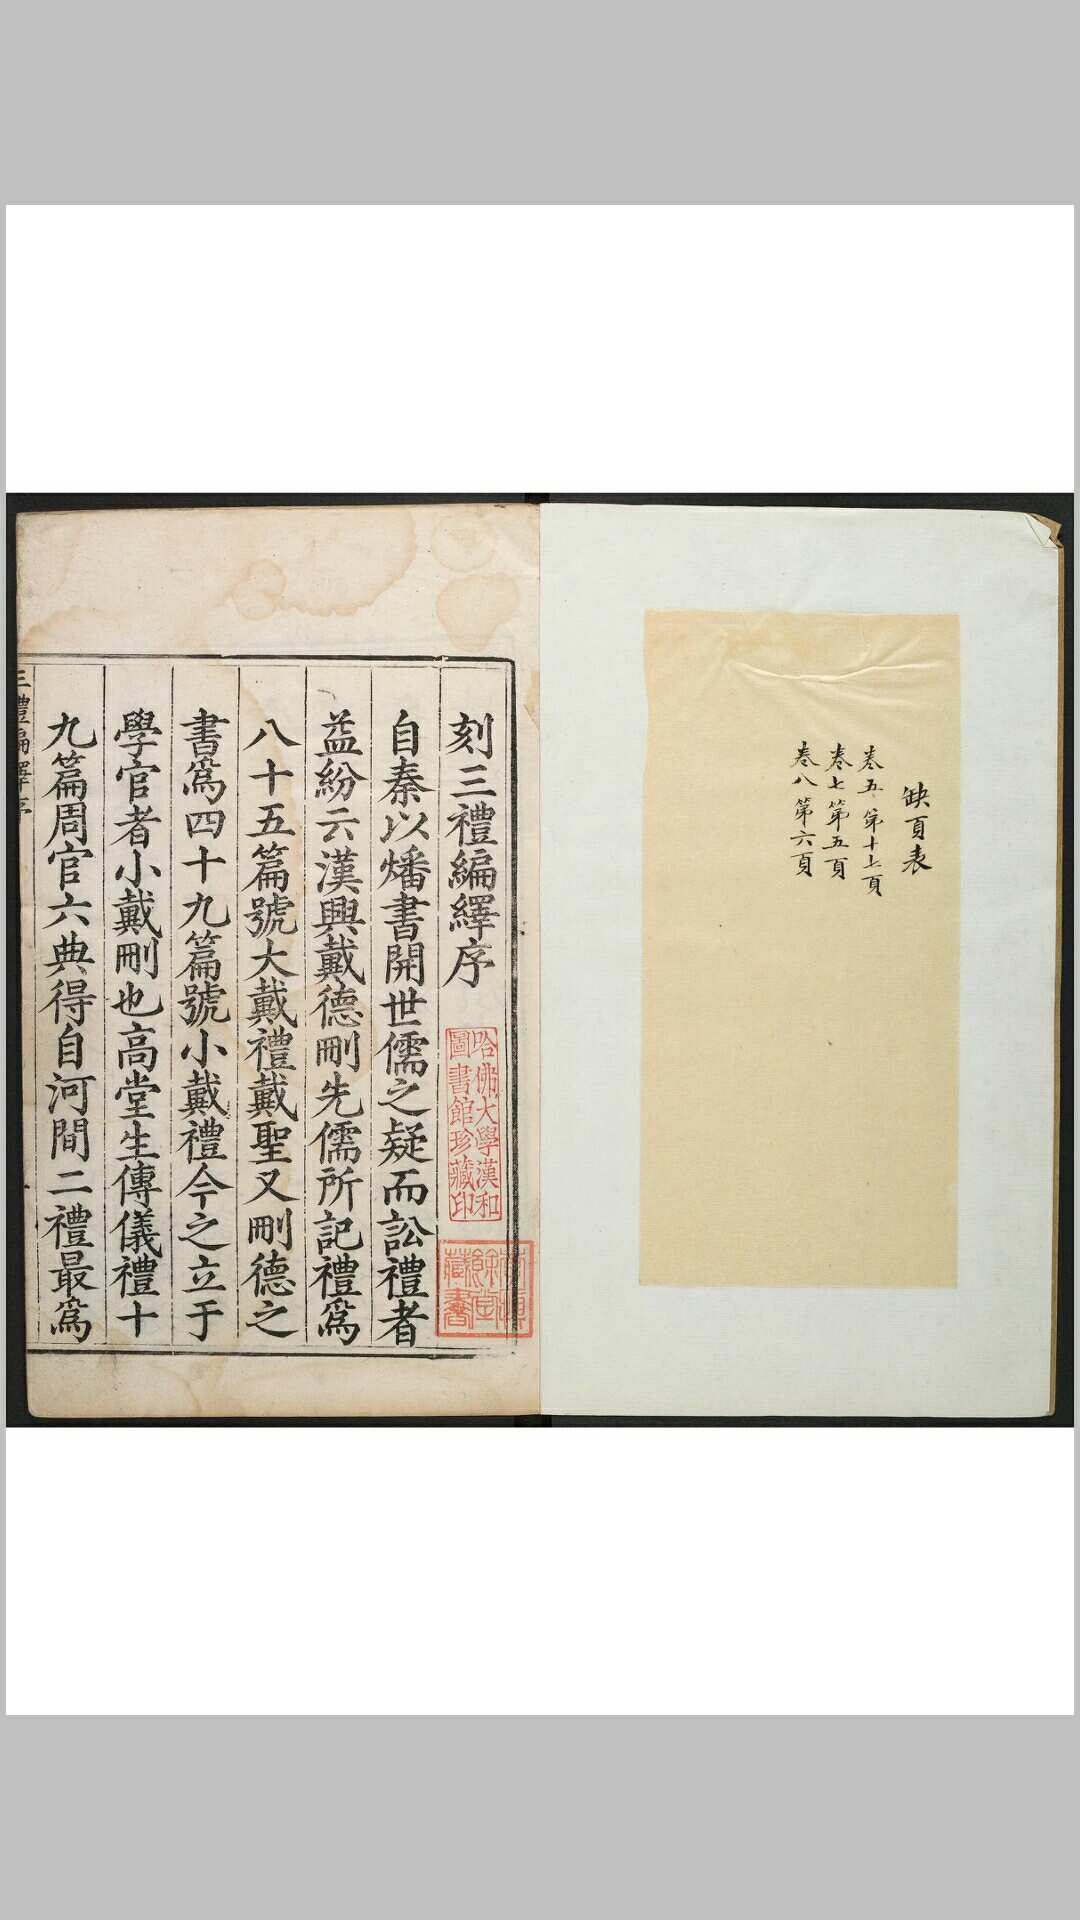 缺頁表
卷五第十七頁
卷七第五頁
卷八第六頁
刻三禮編繹序
哈佛大學漢和
圖書館珍藏印
餘堂
藏書
自秦以燔書開世儒之疑而訟禮者
益紛云漢興戴德刪先儒所記禮爲
八十五篇號大戴禮戴聖又刪德之
書爲四十九篇號小戴禮今之立于
學官者小戴刪也高堂生傳儀禮十
九篇周官六典得自河間二禮最爲
三禮編繹序